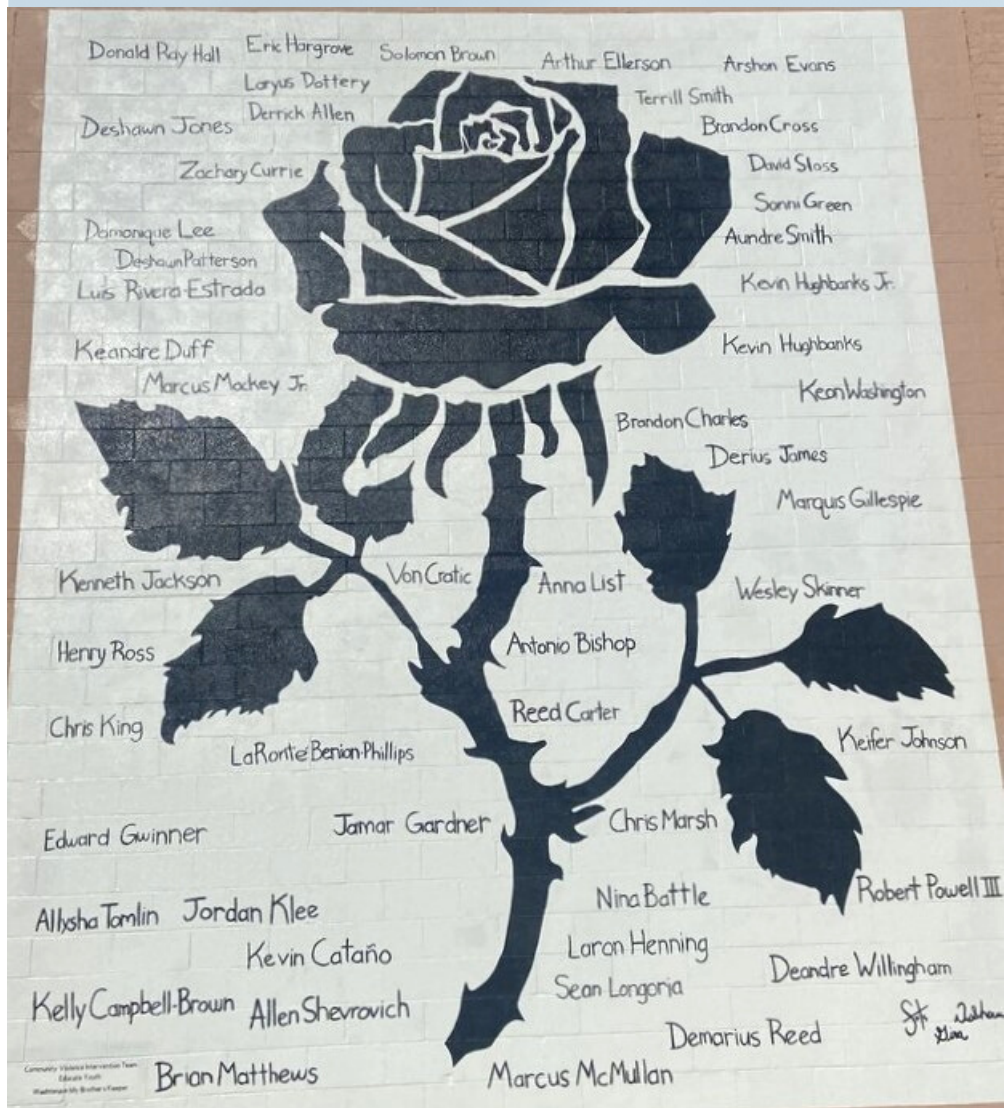 Donald Ray Hall
Eric Hargrove
Solomon Brown
Arthur Ellerson
Arshon Evans
Laryus Dottery
Terrill Smith
Derrick Allen
Deshawn Jones
Brandon Cross
Zachary Currie
David Sloss
Sonni Green
Damonique Lee
Aundre Smith
Deshaun Patterson
Luis Rivera-Estrada
Kevin Hughbanks Jr.
Keandre Duff
Kevin Hughbanks
Marcus Mackey Jr.
Keon Washington
Brandon Charles
Derius James
Marquis Gillespie
Kenneth Jackson
Von Cratic
Anna List
Wesley Skinner
Henry Ross
Antonio Bishop
Chris King
Reed Carter
LaRonté Benion-Phillips
Keifer Johnson
Edward Gwinner
Jamar Gardner
Chris Marsh
Robert Powell III
Nina Battle
Allysha Tomlin
Jordan Klee
Kevin Cataño
Laron Henning
Deandre Willingham
Sean Longoria
Kelly Campbell-Brown
Allen Shevrovich
Demarius Reed
Brian Matthews
Marcus McMullan
Community Violence Intervention Team
Educate Youth
Washtenaw My Brother's Keeper